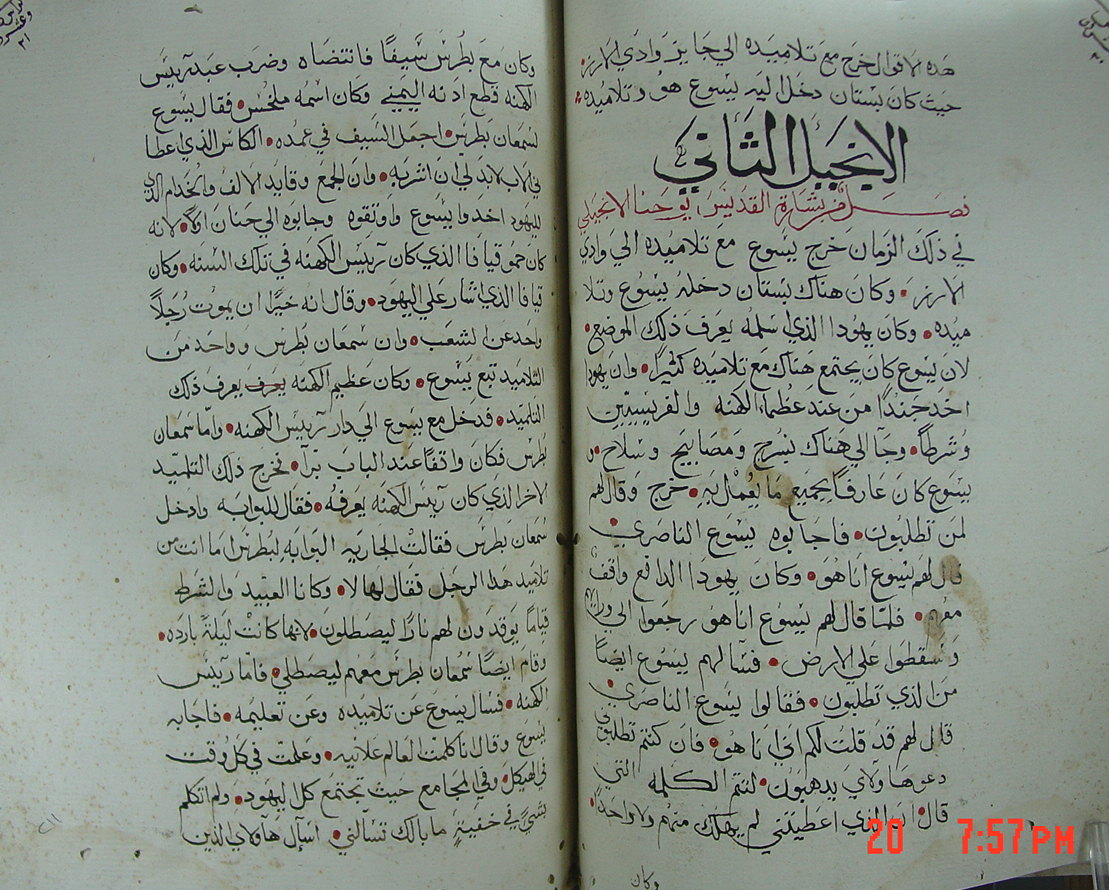 هذه الاقوال خرج مع تلاميذه الي جايز وادي الارز
حيث كان بستان دخل اليه يسوع هو وتلاميذه
الانجيل الثاني
فصل من بشارة القديس يوحنا الانجيلي
في ذلك الزمان خرج يسوع مع تلاميذه الي وادي
الارز • وكان هناك بستان دخله يسوع وتلا
ميذه • وكان يهودا الذي اسلمه يعرف ذلك الموضع •
لان يسوع كان يجتمع هناك مع تلاميذه كثيرا • وان يهودا
اخد جندا من عند عظماء الكهنه والفريسيين
وشرطا • وجا الي هناك بسرج ومصابيح وسلاح • و
يسوع كان عارفا بجميع ما يعمل به • خرج وقال لهم
لمن تطلبون • فاجابوه يسوع الناصري •
قال لهم يسوع انا هو • وكان يهودا الدافع واقف
معهم • فلما قال لهم يسوع انا هو رجعوا الي ورايهم
وسقطوا علي الارض • فسالهم يسوع ايضا
من الذي تطلبون • فقالوا يسوع الناصري •
قال لهم قد قلت لكم اني انا هو • فان كنتم تطلبوني
دعوا هاولاي يدهبون • لتتم الكلمه التي
قال • ان الذي اعطيتني لم يهلك منهم ولا واحدا •
وكان
وكان مع بطرس سيفا فانتضاه وضرب عبد رييس
الكهنه قطع ادنه اليمني وكان اسمه ملخس • فقال يسوع
لسمعان بطرس • اجعل السيف في غمده • الكاس الذي اعطا
ني الاب لا بد لي ان اشربه • وان الجمع وقايد الالف والخدام الذي
لليهود اخدوا يسوع واوتقوه وجابوه الي حنان اولا • لانه
كان حمو قيافا الذي كان رييس الكهنه في تلك السنه • وكان
قيافا الذي اشار علي اليهود • وقال انه خيرا ان يموت رجلا
واحد عن الشعب • وان سمعان بطرس وواحد من
التلاميد تبع يسوع • وكان عظيم الكهنه يعرف يعرف ذلك
التلميد • فدخل مع يسوع الي دار رييس الكهنه • واما سمعان
بطرس فكان واقفا عند الباب برا • فخرج ذلك التلميد
الاخر الذي كان رييس الكهنه يعرفه • فقال للبوابه وادخل
سمعان بطرس فقالت الجاريه البوابه لبطرس اما انت من
تلاميد هدا الرجل فقال لها لا • وكانا العبيد والشرط
قياما يوقدون لهم نارا ليصطلون • لانها كانت ليلة بارده •
وقام ايضا سمعان بطرس معهم ليصطلي • فاما رييس
الكهنه • فسال يسوع عن تلاميده وعن تعليمه • فاجابه
يسوع وقال انا كلمت العالم علانيه • وعلمت في كل وقت
في الهيكل • وفي المجامع حيث تجتمع كل اليهود • ولم اتكلم
بشي في خفية ما بالك تسالني • اسال هاولاي الذين
20 7:57 PM